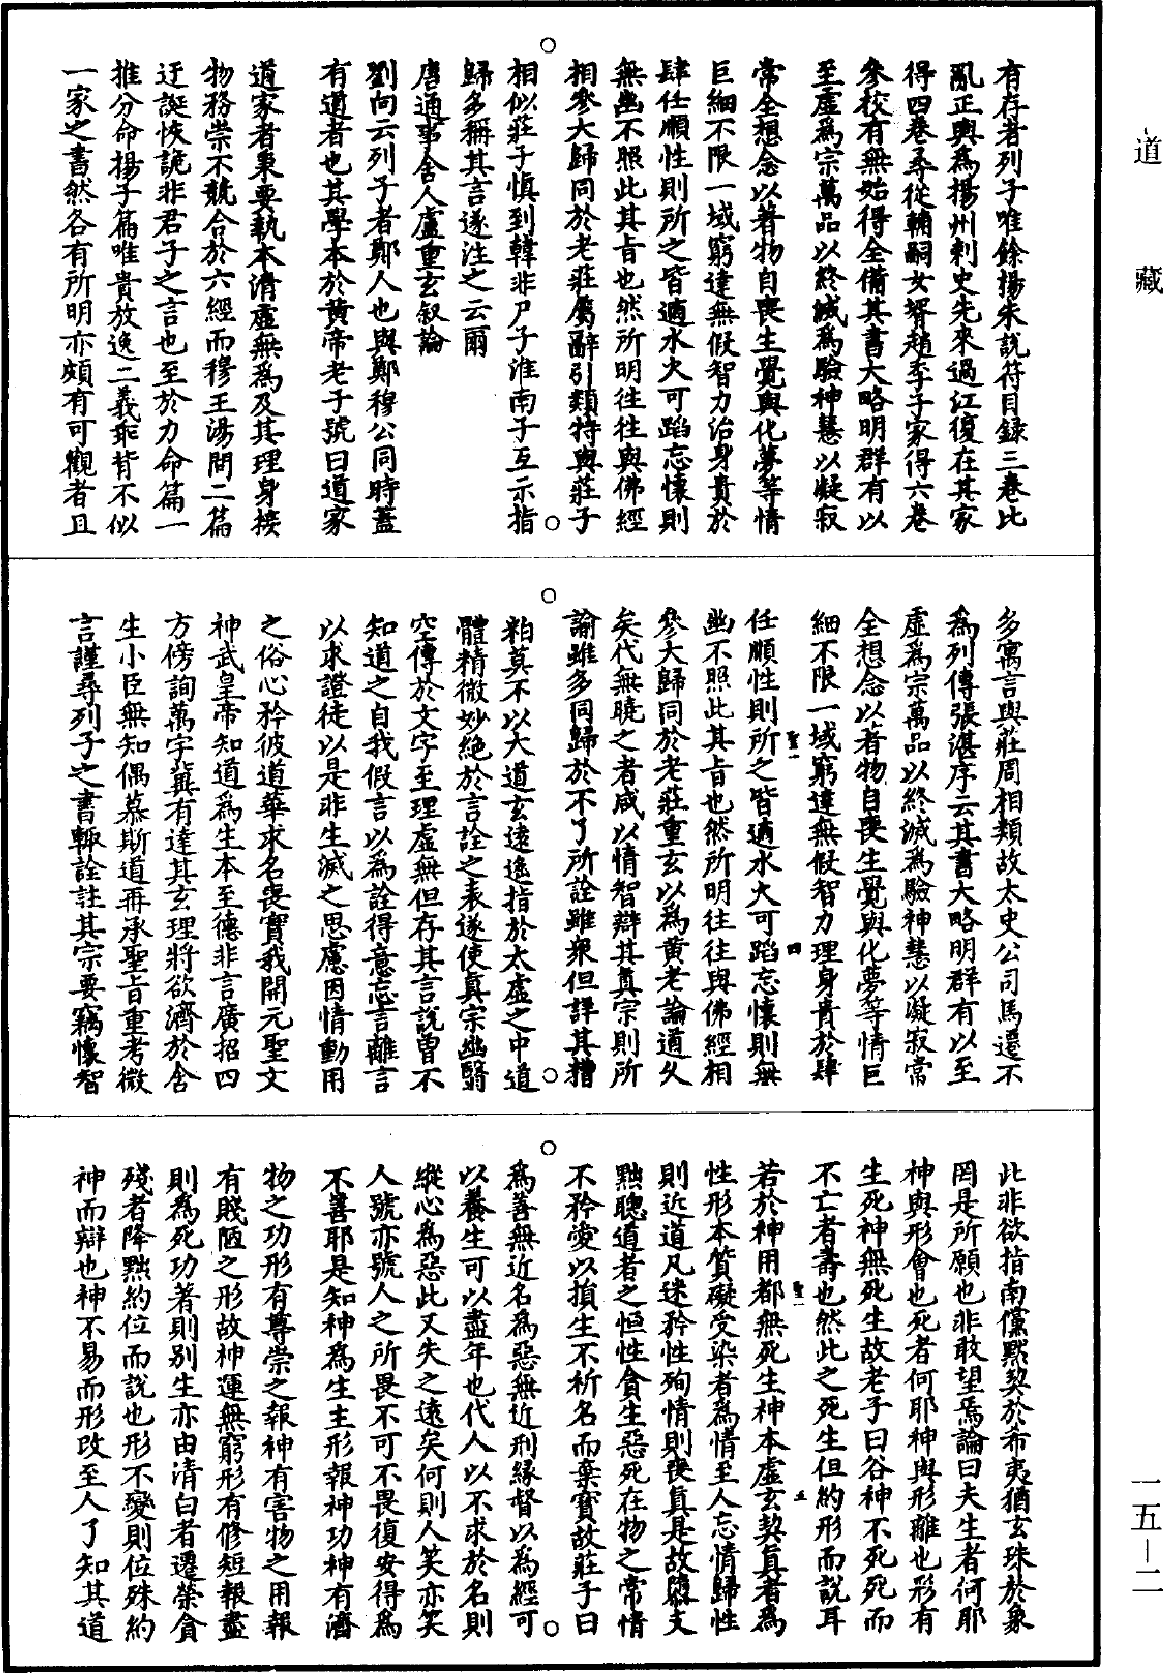 道藏
一五—二
有存者列子唯餘揚朱說符目録三卷比
亂正輿為揚州刺史先來過江復在其家
得四卷尋從輔嗣女壻趙季子家得六卷
參校有無始得全備其書大略明群有以
至虛為宗萬品以終滅為驗神慧以凝寂
常全想念以著物自喪生覺與化夢等情
巨細不限一域窮達無假智力治身貴於
肆任順性則所之皆適水火可蹈忘懷則
無幽不照此其旨也然所明往往與佛經
相參大歸同於老莊屬辭引類特與莊子
相似莊子慎到韓非尸子淮南子玄示指
歸多稱其言遂注之云爾
唐通事舍人盧重玄叙論
劉向云列子者鄭人也與鄭穆公同時蓋
有道者也其學本於黃帝老子號曰道家
道家者秉要執本清虛無為及其理身接
物務崇不兢合於六經而穆王湯問二篇
迂誕恢詭非君子之言也至於力命篇一
推分命揚子篇唯貴放逸二義乖背不似
一家之書然各有所明亦頗有可觀者且
多寓言與莊周相類故太史公司馬遷不
為列傳張湛序云其書大略明群有以至
虛為宗萬品以終滅為驗神慧以凝寂常
全想念以著物自喪生覺與化夢等情巨
細不限一域窮達無假智力理身貴於肆
任順性則所之皆適水火可蹈忘懷則無
幽不照此其旨也然所明往往與佛經相
參大歸同於老莊重玄以為黃老論道久
矣代無曉之者咸以情智辯其真宗則所
諭雖多同歸於不了所詮雖衆但詳其糟
粕莫不以大道玄遠遙指於太虛之中道
體精微妙絕於言詮之表遂使真宗幽翳
空傳於文字至理虛無但存其言說曾不
知道之自我假言以為詮得意忘言離言
以求證徒以是非生滅之思慮因情動用
之俗心矜彼道華求名喪實我開元聖文
神武皇帝知道為生本至德非言廣招四
方傍詢萬宇冀有達其玄理將欲濟於含
生小臣無知偶慕斯道再承聖旨重考微
言謹尋列子之書輒詮註其宗要竊懷智
此非欲指南儻默契於希夷猶玄珠於象
罔是所願也非敢望焉論曰夫生者何耶
神與形會也死者何耶神與形離也形有
生死神無死生故老子曰谷神不死死而
不亡者壽也然此之死生但約形而說耳
若於神用都無死生神本虛玄契真者為
性形本質礙受染者為情至人忘情歸性
則近道凡迷矜性殉情則喪真是故隳支
黜聰道者之恒性貪生惡死在物之常情
不矜愛以損生不祈名而棄實故莊子曰
為善無近名為惡無近刑緣督以為經可
以養生可以盡年也代人以不求於名則
縱心為惡此又失之遠矣何則人笑亦笑
人號亦號人之所畏不可不畏復安得為
不善耶是知神為生主形報神功神有濟
物之功形有尊崇之報神有害物之用報
有賤陋之形故神運無窮形有修短報盡
則為死功著則別生亦由清白者遷榮貪
殘者降黜約位而說也形不變則位殊約
神而辯也神不易而形改至人了知其道